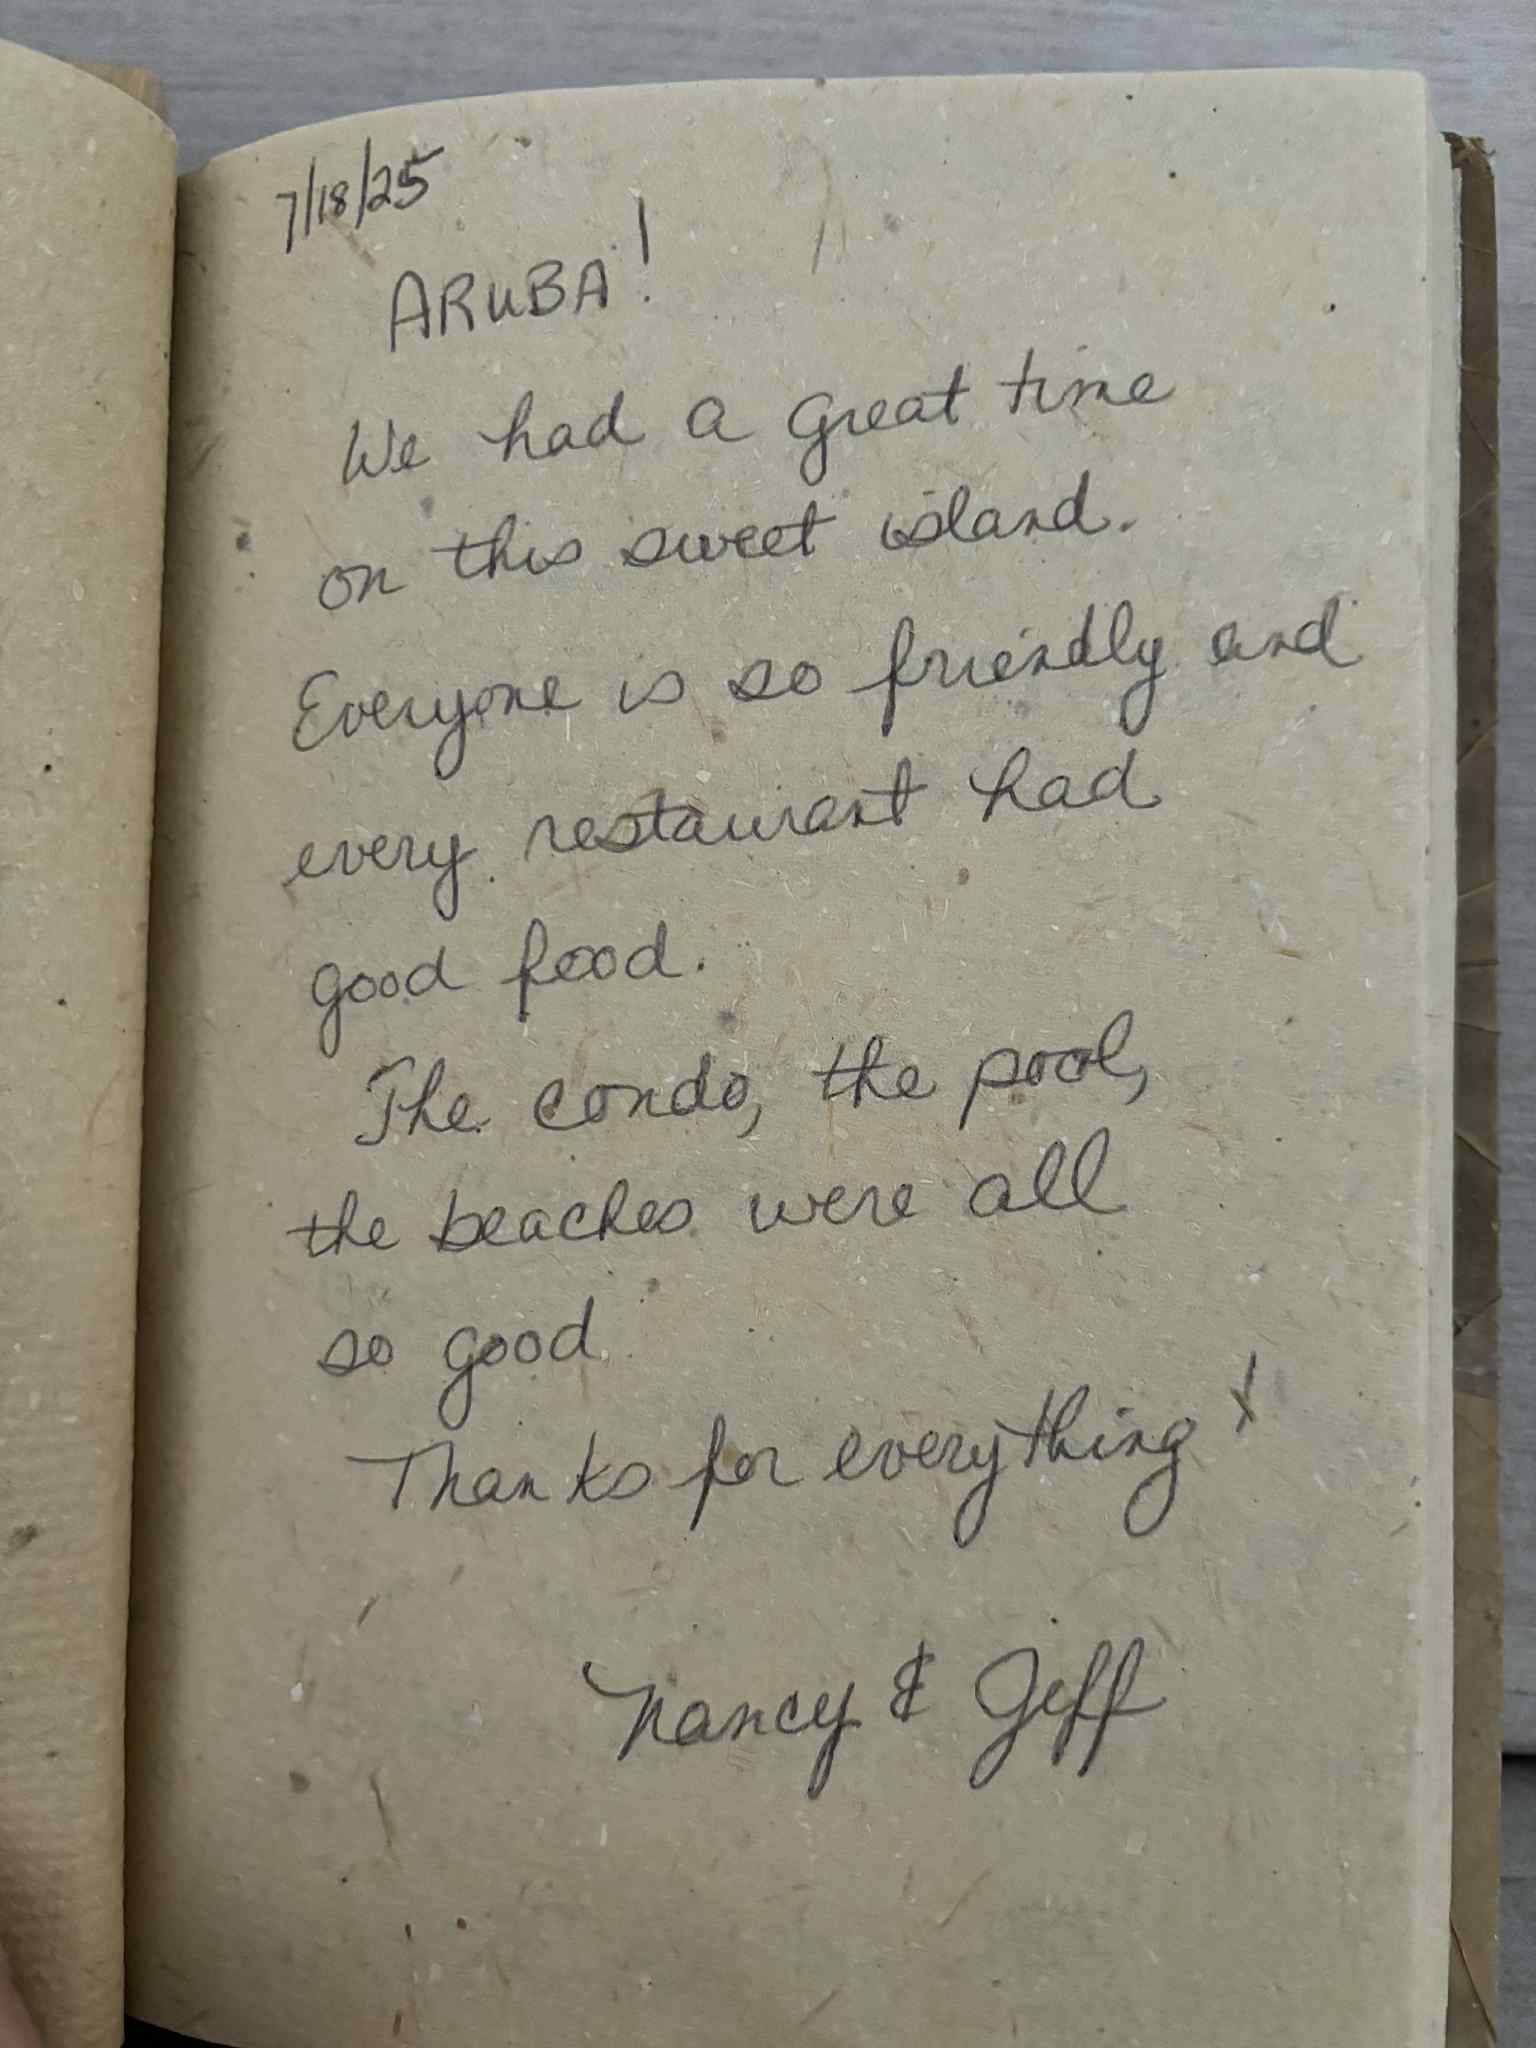 7/18/25
ARUBA!
We had a great time
on this sweet island.
Everyone is so friendly and
every restaurant had
good food.
The condo, the pool,
the beaches were all
so good.
Thanks for everything!
Nancy & Jeff